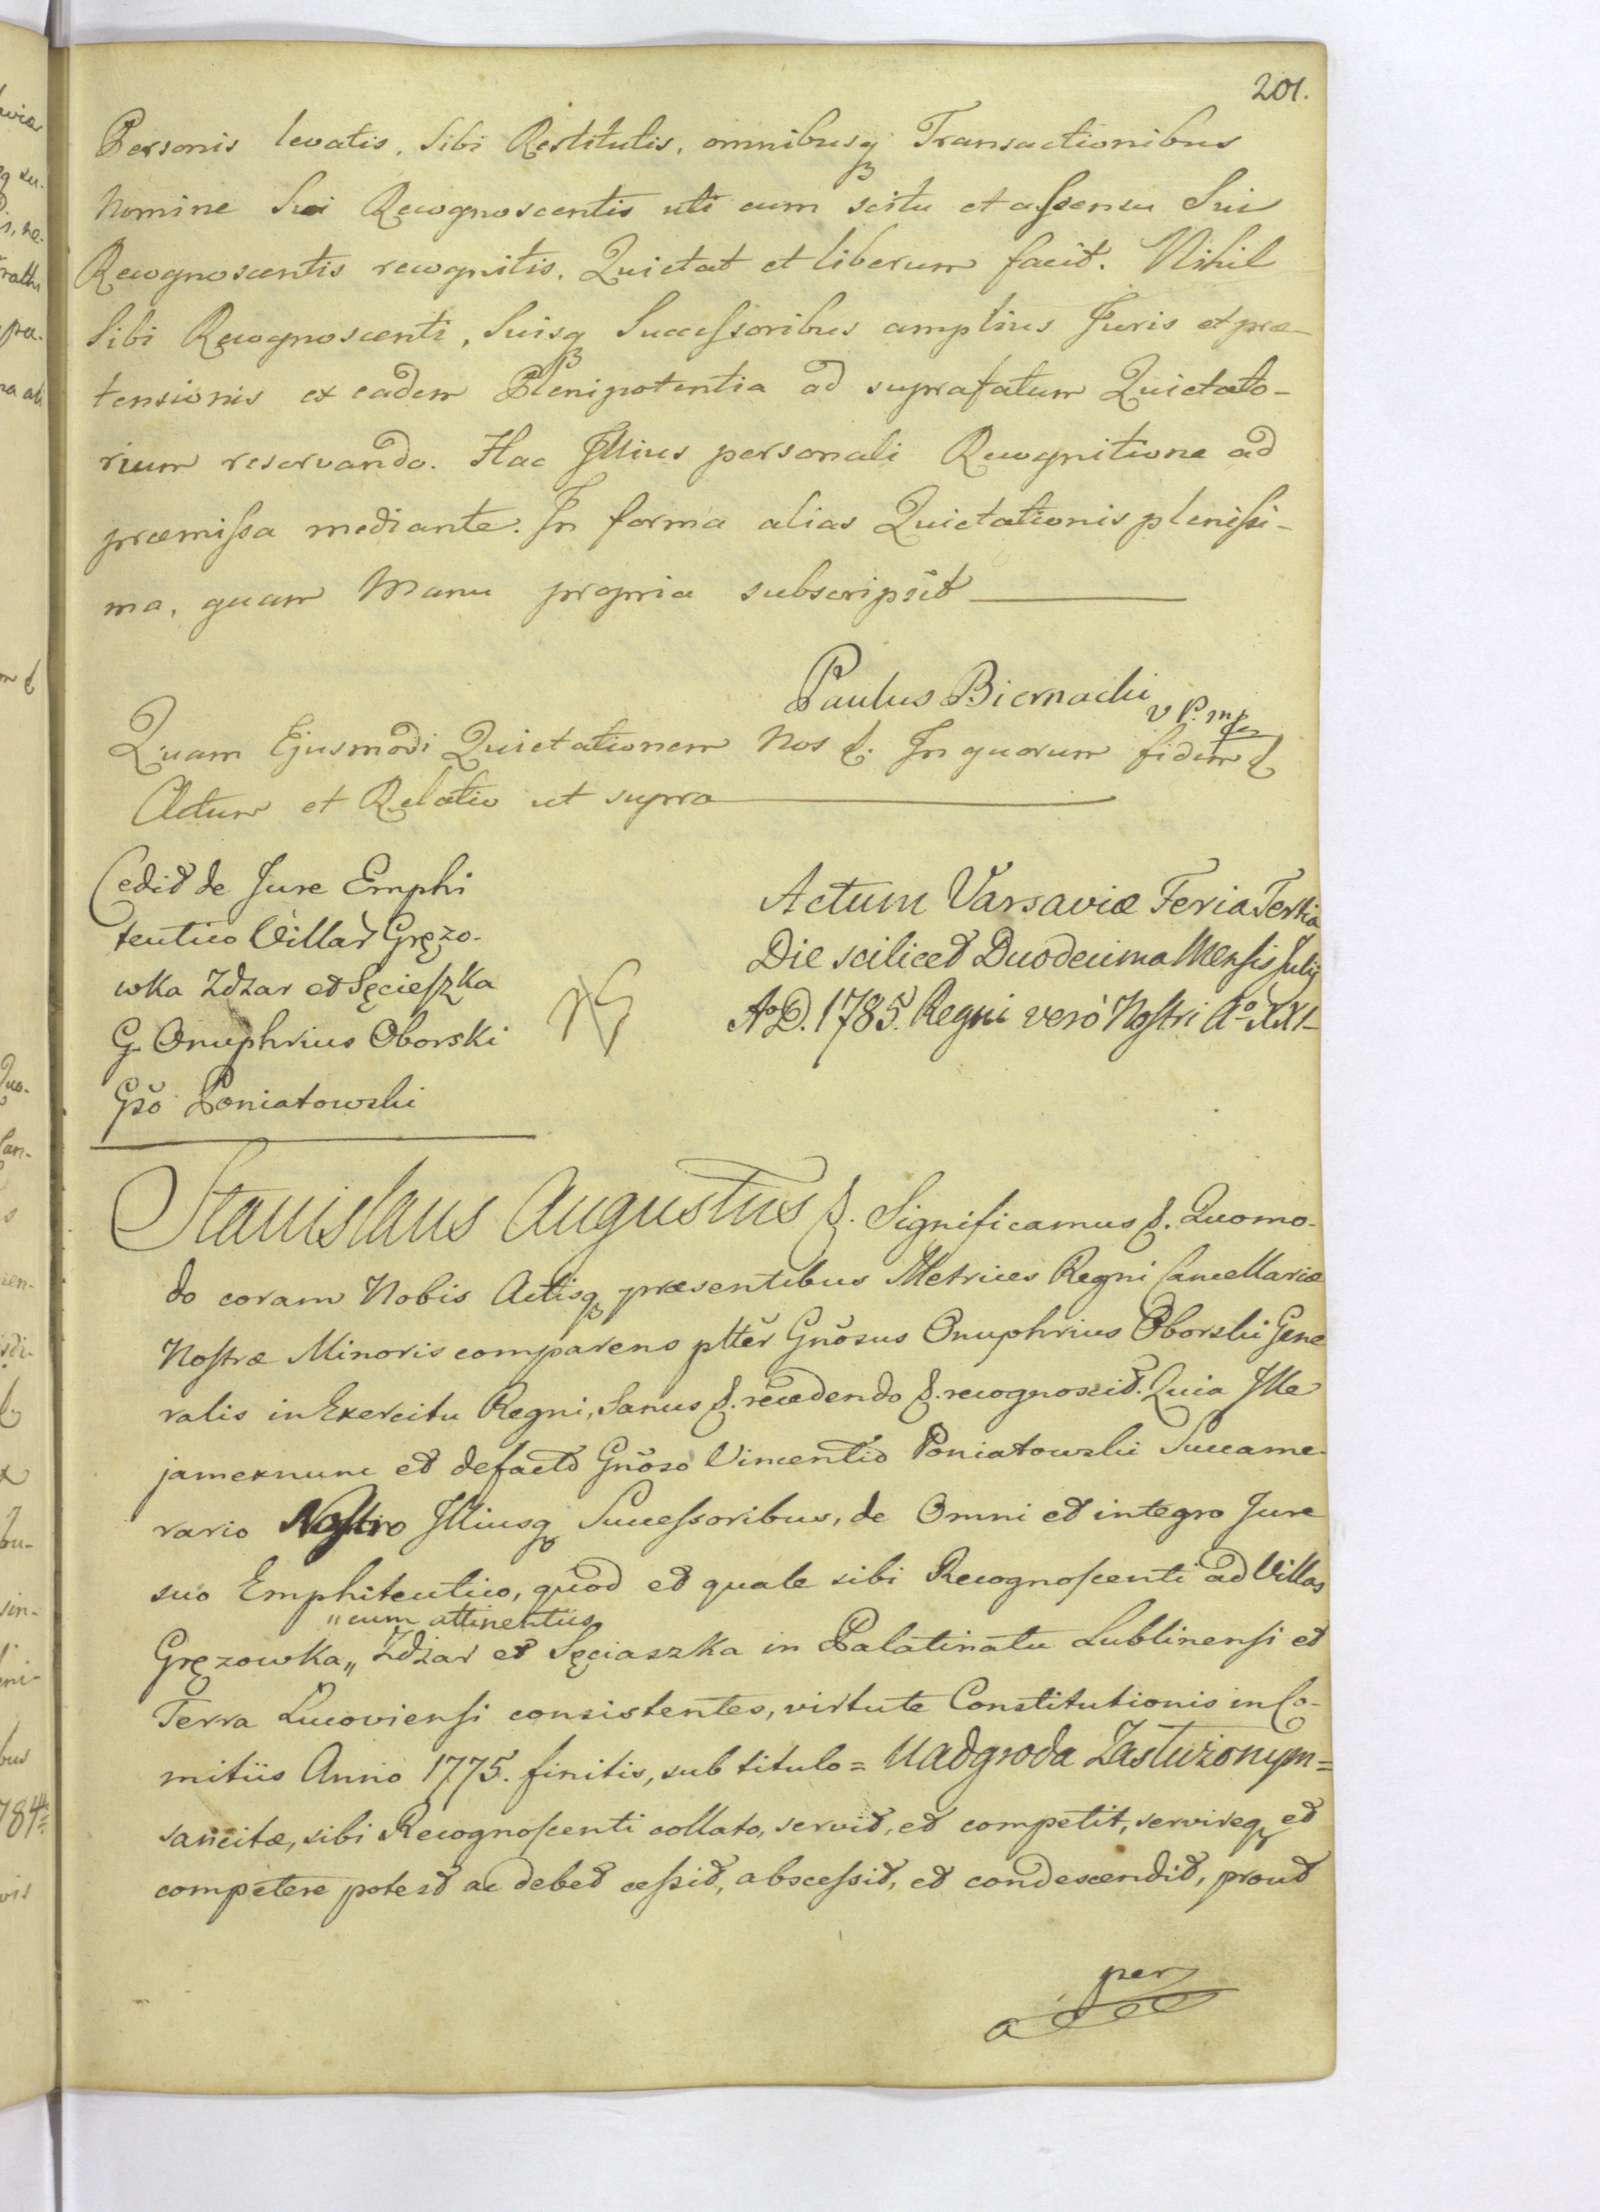 201.
Personis levatis, Sibi Restitutis, omnibusq Transactionibus
Nomine Sui Recognoscentis uti cum scitu et assensu Sui
Recognoscentis recognitis, Quietat et liberum facit. Nihil
Sibi Recognoscenti, Suisq Successoribus amplius Juris et præ-
tensionis ex eadem Plenipotentia ad suprafatum Quietato-
rium reservando. Hac Illius personali Recognitione ad
præmissa mediante. In forma alias Quietationis plenissi-
ma, quam Manu propria subscripsit
Paulus Biernacki
V P. mp
Quam Ejusmodi Quietationem Nos &. In quorum fidem &
Actum et Relatio ut supra
Cedit de Jure Emphi
teutico Villar Gręzo-
wka Zdżar et Sęcieszka
G. Onuphrius Oborski
Gso Poniatowski
Actum Varsaviæ Feria Tertia
Die scilicet Duodecima Mensis Julij
Ao D. 1785. Regni vero Nostri Ao XXI
Stanislaus Augustus &. Significamus &. Quomo-
do coram Nobis Actisq præsentibus Metrices Regni Cancellariæ
Nostræ Minoris comparens pltter Gnosus Onuphrius Oborski Gene
ralis in Exercitu Regni, Sanus &. recedendo &. recognovit. Quia Ille
jam ex nunc et de facto Gnoso Vincentio Poniatowski Succame-
rario Nostro Illiusq Successoribus, de Omni et integro Jure
suo Emphiteutico, quod et quale sibi Recognoscenti ad Villas
"cum attinentiis
Gręzowka" Zdżar et Sęciaszka in Palatinatu Lublinensi et
Terra Lucoviensi consistentes, virtute Constitutionis in Co-
mitiis Anno 1775. finitis, sub titulo = Nadgroda Zasłużonym =
sancitæ, sibi Recognoscenti collato, servit, et competit, servireq et
competere potest ac debet cessit, abscessit, et condescendit, prout
per